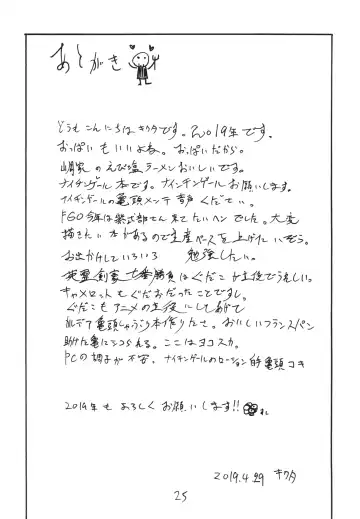 あとがき
どうもこんにちはキクタです。2019年です。
おっぱいもいいよね。おっぱいだから。
家のえび塩ラーメンおいしいです。
ナイチンゲール本です。ナイチンゲールお願いします。
ナイチンゲールの亀頭メンテ音声ください。
FGO今年は紫式部さん来てたいへんでした。大変
描きたい本があるので生産ペースを上げたいぞう。
お出かけしていろいろ勉強したい。
英霊剣豪七番勝負はぐだこが主役でうれしい。
キャメロットもぐだおだったことですし。
ぐだこもアニメの主役にしてあげて
亀頭しゃぶり本作りたさ。おいしいフランスパン
助けた亀につられる。ここはヨコスカ。
PCの調子が不安。ナイチンゲールのローション的亀頭コキ
2019年もよろしくお願いします!!
2019.4.29 キクタ
25